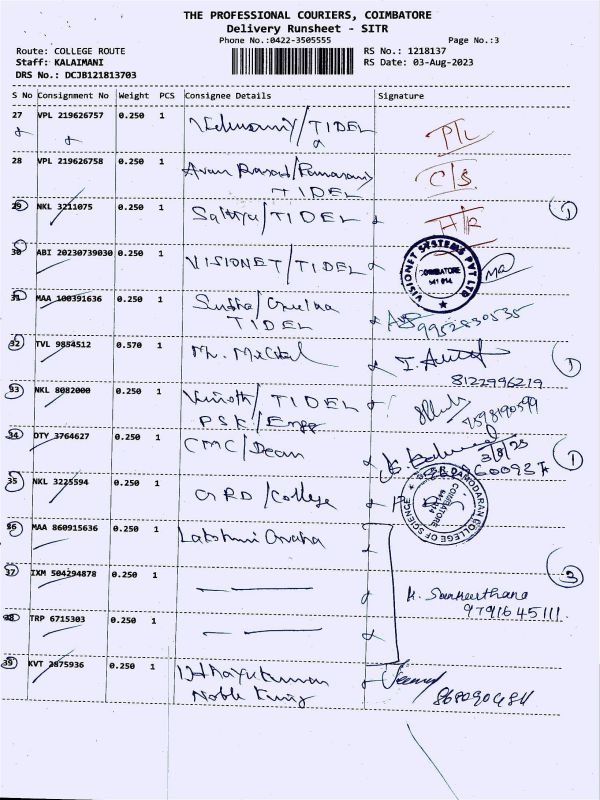 THE PROFESSIONAL COURIERS, COIMBATORE
Delivery Runsheet - SITR
Phone No.:0422-3505555 Page No.:3
Route: COLLEGE ROUTE RS No.: 1218137
Staff: KALAIMANI RS Date: 03-Aug-2023
DRS No.: DCJB121813703
S No Consignment No Weight PCS Consignee Details Signature
27 VPL 219626757 0.250 1 /TIDEL P/L
28 VPL 219626758 0.250 1 C/S
TIDEL
29 NKL 3211075 0.250 1 Sathya/TIDEL H/R 1
30 ABI 20230739030 0.250 1 VISIONET/TIDEL
VISIONET SYSTEMS PVT LTD
COIMBATORE
641 014
31 MAA 100391636 0.250 1
TIDEL 9952830535
32 TVL 9854512 0.570 1 1
8122996219
33 NKL 8082000 0.250 1 Vinoth/TIDEL
PSK/Engg
34 DTY 3764627 0.250 1 CMC/Dean 3/8/23 1
35 NKL 3225594 0.250 1 GRD/College
DAMODARAN COLLEGE OF SCIENCE
COIMBATORE
36 MAA 860915636 0.250 1 Lakshmi
37 IXM 504294878 0.250 1 3
9791645111
38 TRP 6715303 0.250 1
39 KVT 2875936 0.250 1
Noble King 868090484